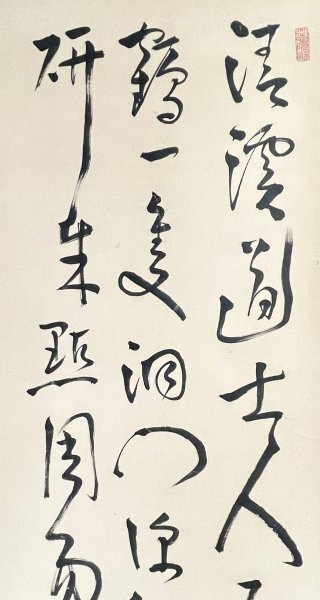 清溪道士人
鶴一隻洞門深
研朱點周易